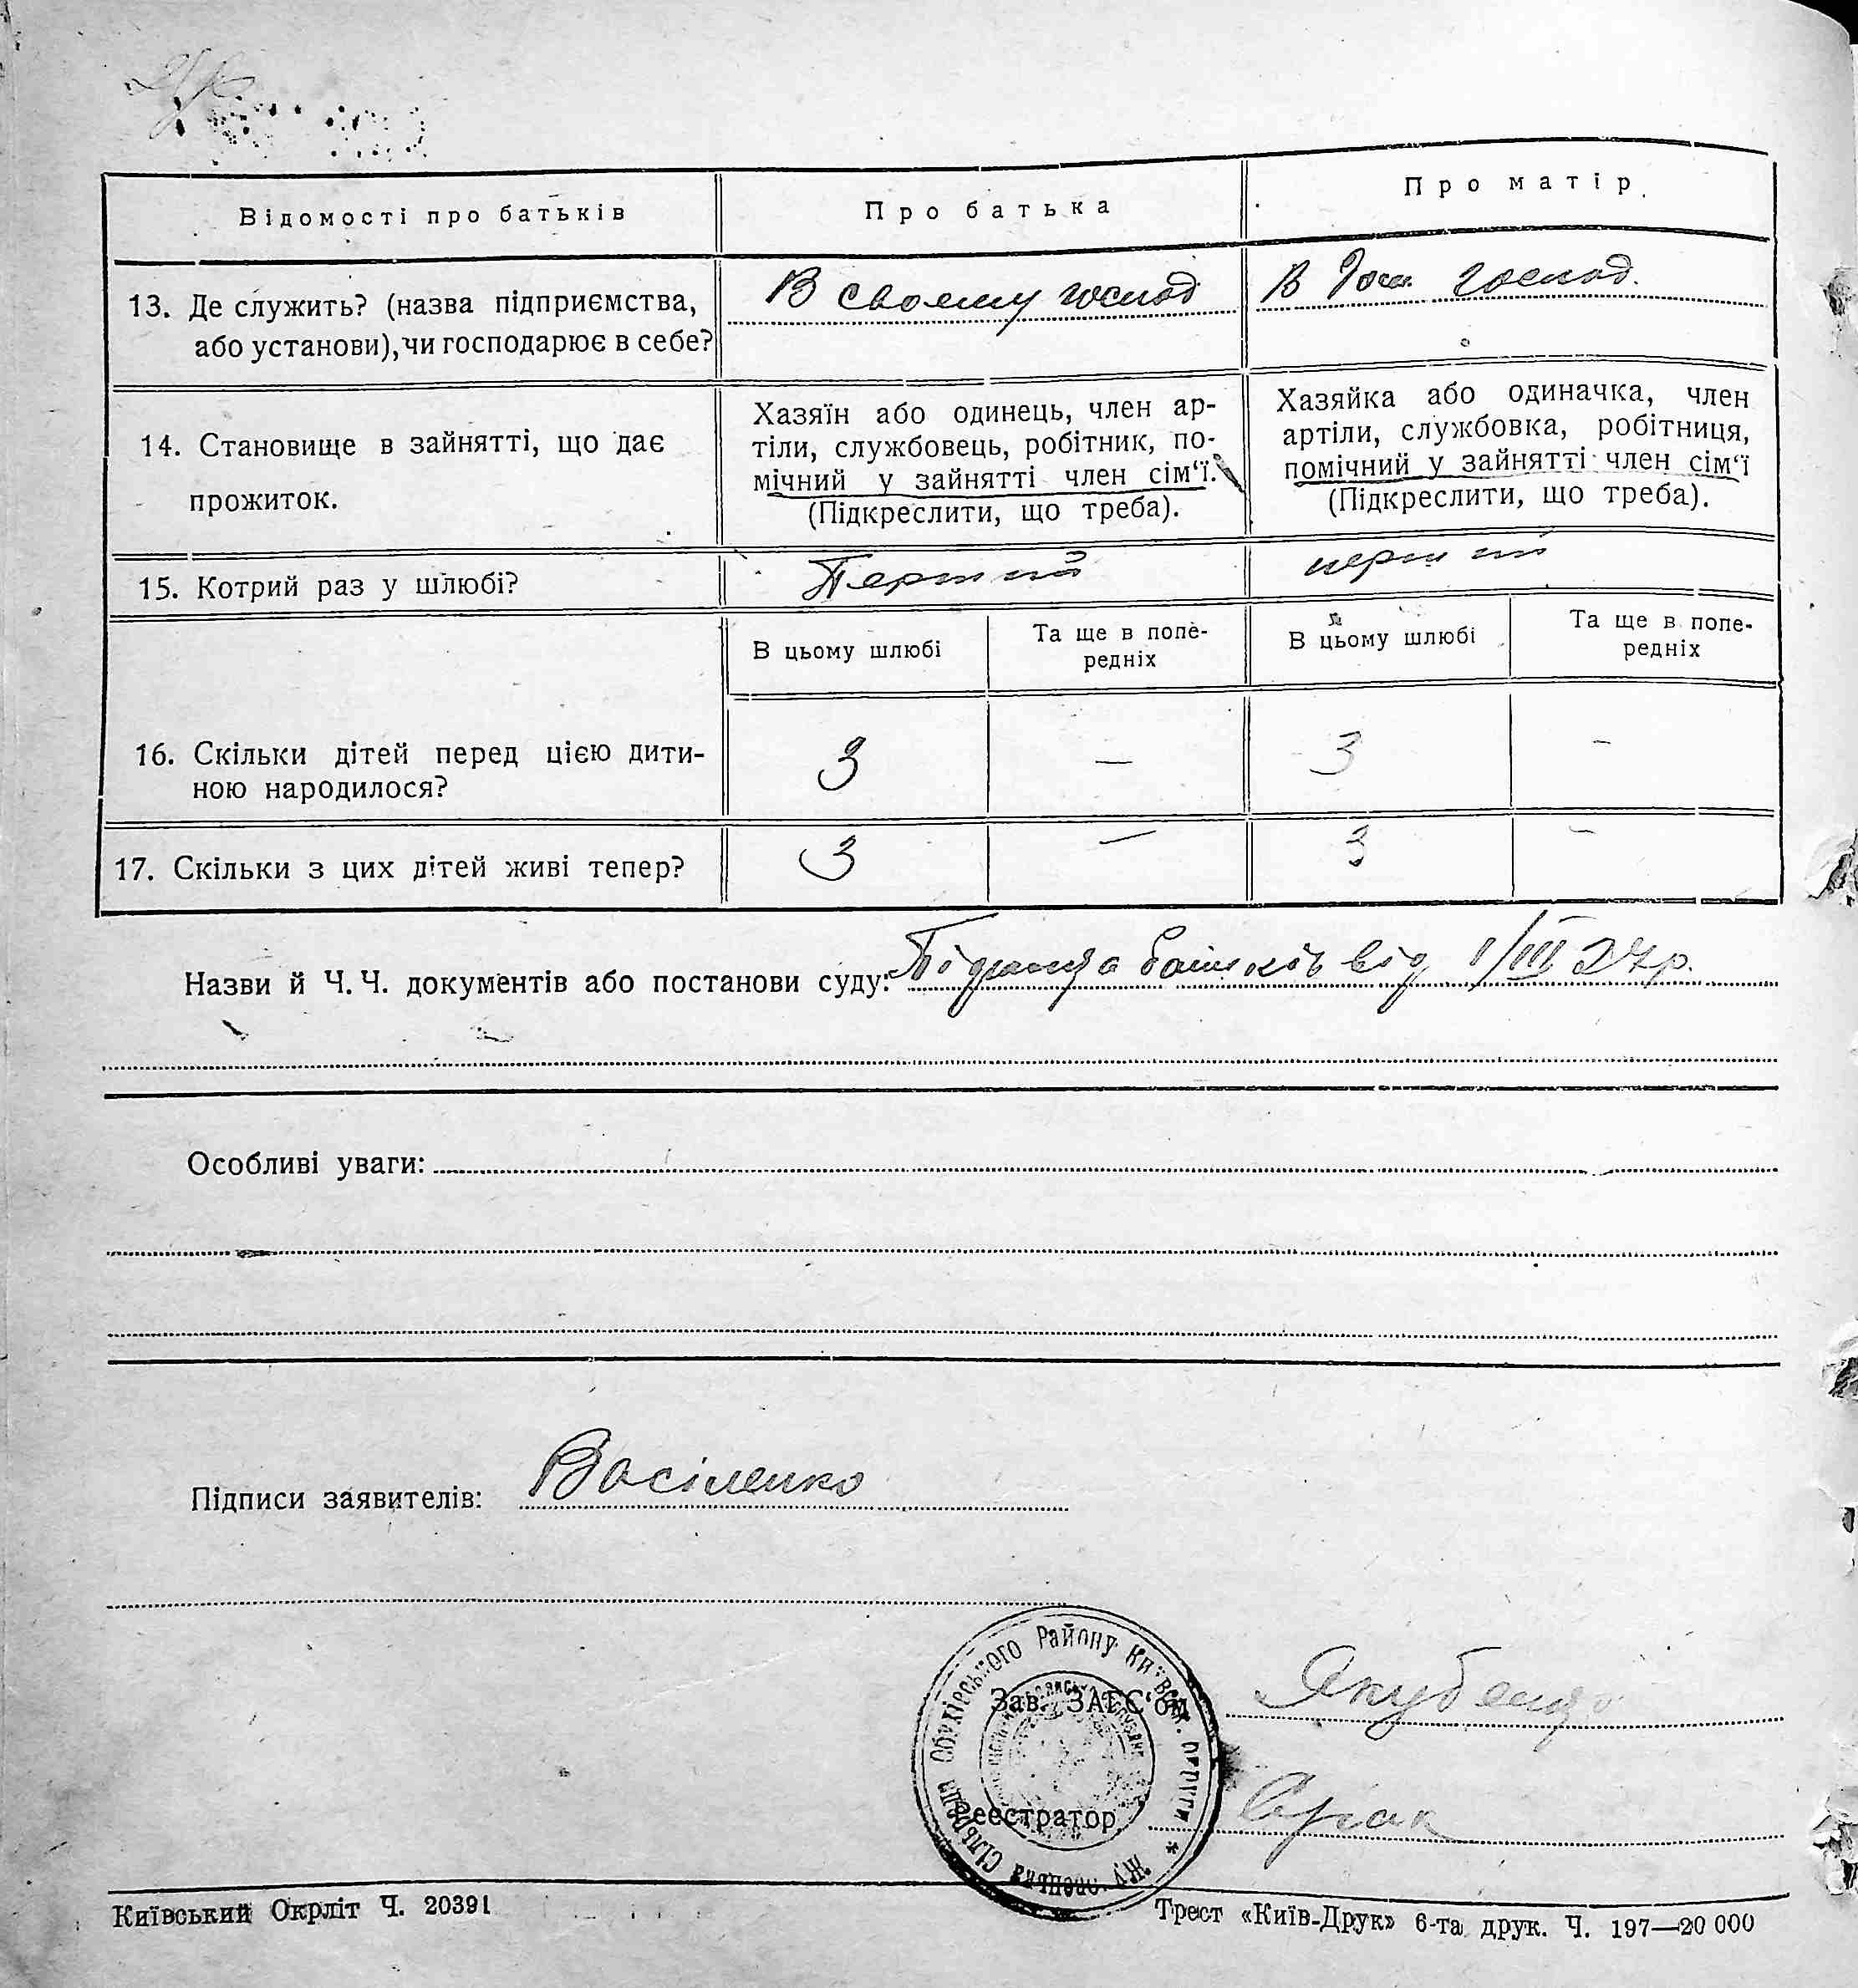 Відомості про батьків
Про батька
Про матір
13. Де служить? (назва підприємства,
або установи), чи господарює в себе?
В своєму господ
В господ.
14. Становище в зайнятті, що дає
прожиток.
Хазяїн або одинець, член ар-
тіли, службовець, робітник, по-
мічний у зайнятті член сім‘ї.
(Підкреслити, що треба).
Хазяйка або одиначка, член
артіли, службовка, робітниця,
помічний у зайнятті член сім‘ї
(Підкреслити, що треба).
15. Котрий раз у шлюбі?
Перший
перший
В цьому шлюбі
Та ще в попе-
редніх
В цьому шлюбі
Та ще в попе-
редніх
16. Скільки дітей перед цією дити-
ною народилося?
3
—
3
–
17. Скільки з цих дітей живі тепер?
3
—
3
–
Назви й Ч. Ч. документів або постанови суду: батьків від 1/III 27р.
Особливі уваги:
Підписи заявителів: Васіленко
Обухівського Району Київськ. округи * Сільрада
Зав. ЗАГС‘ом
Реєстратор
Київський Окрліт Ч. 20391
Трест «Київ-Друк» 6-та друк. Ч. 197—20 000